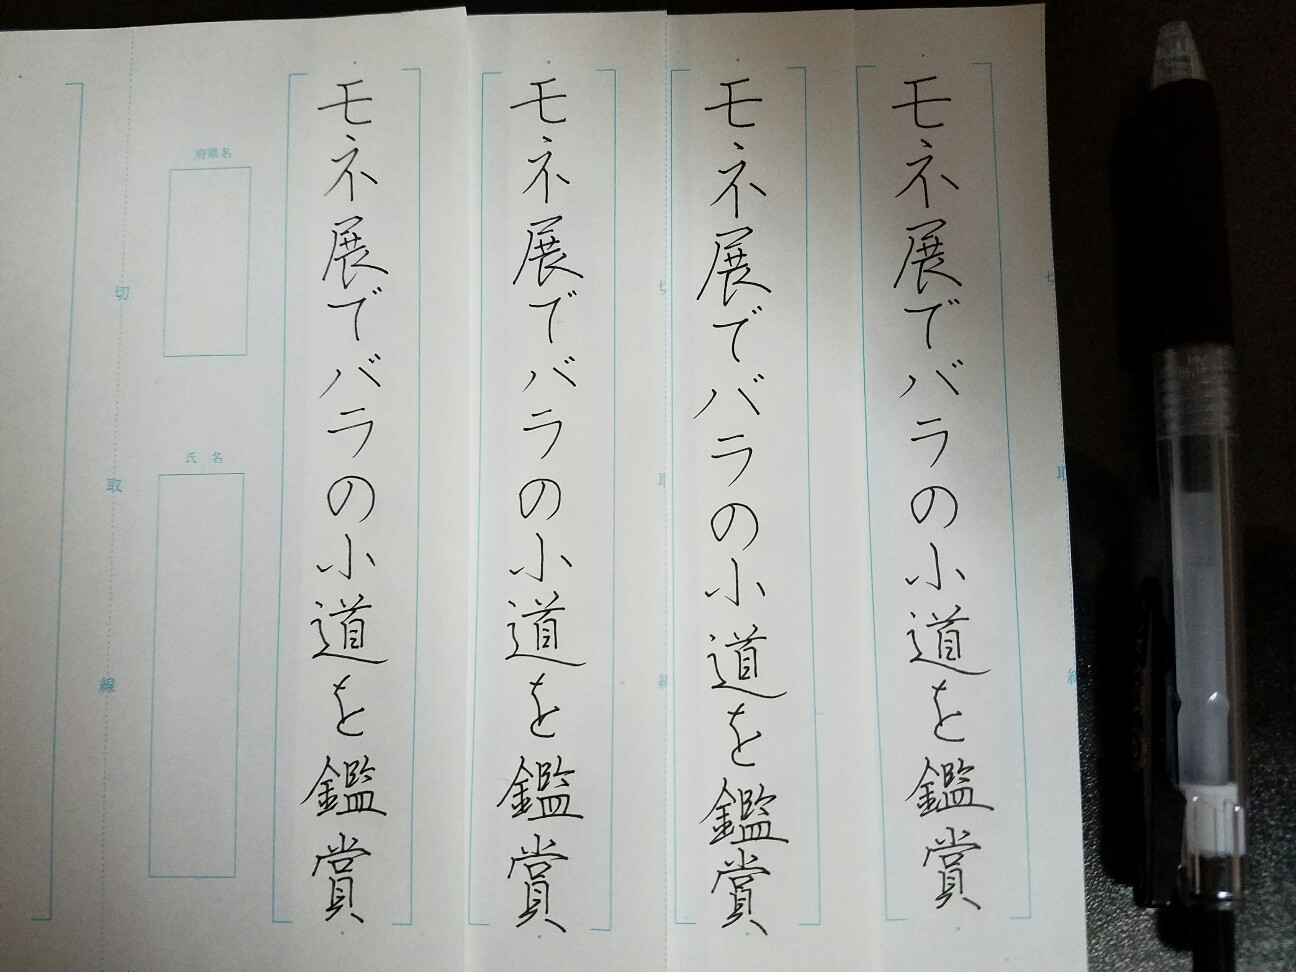 モネ展でバラの小道を鑑賞
モネ展でバラの小道を鑑賞
モネ展でバラの小道を鑑賞
モネ展でバラの小道を鑑賞
府県名
氏名
切取線
切取線
切取線